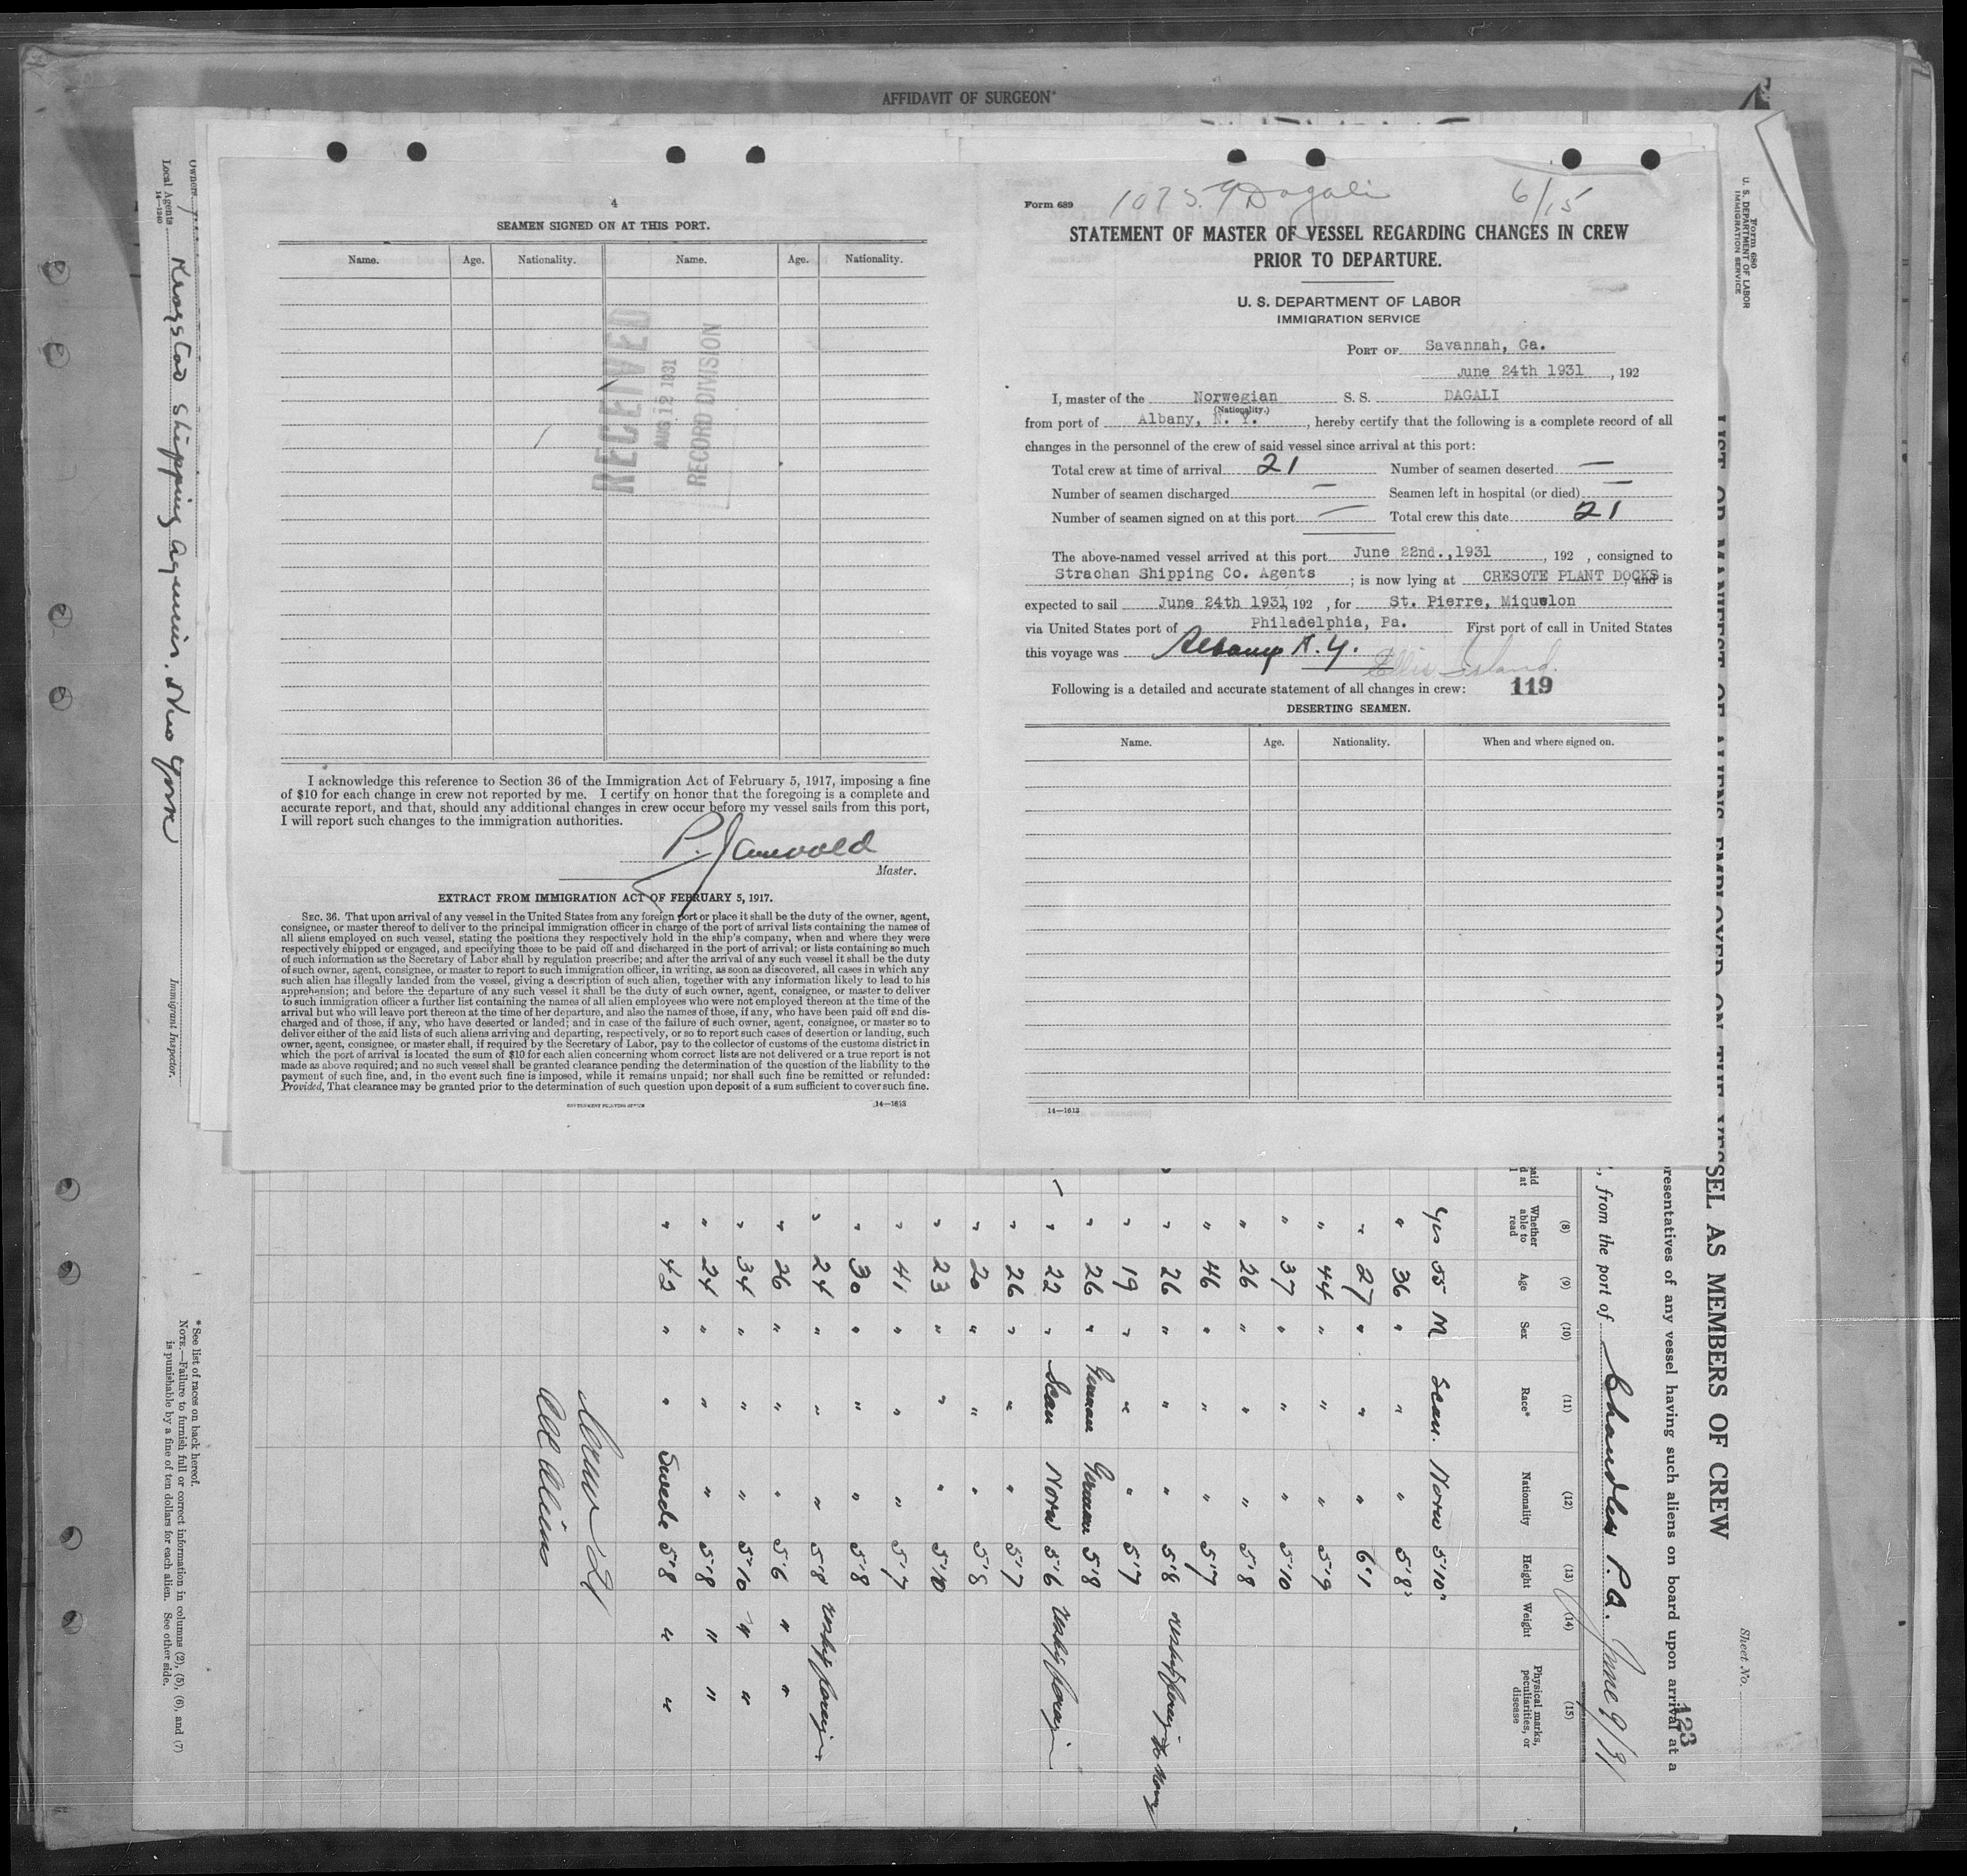 AFFIDAVIT OF SURGEON*
4
SEAMEN SIGNED ON AT THIS PORT.
Name. Age. Nationality. Name. Age. Nationality.
RECEIVED
AUG 12 1931
RECORD DIVISION
I acknowledge this reference to Section 36 of the Immigration Act of February 5, 1917, imposing a fine
of $10 for each change in crew not reported by me. I certify on honor that the foregoing is a complete and
accurate report, and that, should any additional changes in crew occur before my vessel sails from this port,
I will report such changes to the immigration authorities.
Master.
EXTRACT FROM IMMIGRATION ACT OF FEBRUARY 5, 1917.
SEC. 36. That upon arrival of any vessel in the United States from any foreign port or place it shall be the duty of the owner, agent,
consignee, or master thereof to deliver to the principal immigration officer in charge of the port of arrival lists containing the names of
all aliens employed on such vessel, stating the positions they respectively hold in the ship's company, when and where they were
respectively shipped or engaged, and specifying those to be paid off and discharged in the port of arrival; or lists containing so much
of such information as the Secretary of Labor shall by regulation prescribe; and after the arrival of any such vessel it shall be the duty
of such owner, agent, consignee, or master to report to such immigration officer, in writing, as soon as discovered, all cases in which any
such alien has illegally landed from the vessel, giving a description of such alien, together with any information likely to lead to his
apprehension; and before the departure of any such vessel it shall be the duty of such owner, agent, consignee, or master to deliver
to such immigration officer a further list containing the names of all alien employees who were not employed thereon at the time of the
arrival but who will leave port thereon at the time of her departure, and also the names of those, if any, who have been paid off and dis-
charged and of those, if any, who have deserted or landed; and in case of the failure of such owner, agent, consignee, or master so to
deliver either of the said lists of such aliens arriving and departing, respectively, or so to report such cases of desertion or landing, such
owner, agent, consignee, or master shall, if required by the Secretary of Labor, pay to the collector of customs of the customs district in
which the port of arrival is located the sum of $10 for each alien concerning whom correct lists are not delivered or a true report is not
made as above required; and no such vessel shall be granted clearance pending the determination of the question of the liability to the
payment of such fine, and, in the event such fine is imposed, while it remains unpaid; nor shall such fine be remitted or refunded:
Provided, That clearance may be granted prior to the determination of such question upon deposit of a sum sufficient to cover such fine.
GOVERNMENT PRINTING OFFICE 14—1613
Form 689 Dagali 6/15
STATEMENT OF MASTER OF VESSEL REGARDING CHANGES IN CREW
PRIOR TO DEPARTURE.
U. S. DEPARTMENT OF LABOR
IMMIGRATION SERVICE
PORT OF Savannah, Ga.
June 24th 1931, 192
I, master of the Norwegian S. S. DAGALI
(Nationality.)
from port of Albany, N. Y., hereby certify that the following is a complete record of all
changes in the personnel of the crew of said vessel since arrival at this port:
Total crew at time of arrival 21 Number of seamen deserted —
Number of seamen discharged — Seamen left in hospital (or died) —
Number of seamen signed on at this port — Total crew this date 21
The above-named vessel arrived at this port June 22nd.,1931, 192 , consigned to
Strachan Shipping Co. Agents ; is now lying at CRESOTE PLANT DOCKS, and is
expected to sail June 24th 1931, 192 , for St. Pierre, Miquelon
via United States port of Philadelphia, Pa. First port of call in United States
this voyage was Albany N.Y.
Ellis Island.
Following is a detailed and accurate statement of all changes in crew: 119
DESERTING SEAMEN.
Name. Age. Nationality. When and where signed on.
14—1613
Owners
Local Agents Shipping New York
14—1240
Immigrant Inspector.
Form 680
U. S. DEPARTMENT OF LABOR
IMMIGRATION SERVICE
Sheet No.
LIST OR MANIFEST OF ALIENS EMPLOYED ON THE VESSEL AS MEMBERS OF CREW
resentatives of any vessel having such aliens on board upon arrival at a
123
, from the port of Chandler P.Q. June 9/31
(8) (9) (10) (11) (12) (13) (14) (15)
Whether able to read Age Sex Race* Nationality Height Weight Physical marks, peculiarities, or disease
yes 55 M Scan. Norw 5'10"
" 36 " " " 5'8"
" 27 " " " 6'1
" 44 " " " 5'9
" 37 " " " 5'10
" 26 " " " 5'8
" 46 " " " 5'7
" 26 " " " 5'8
" 19 " " " 5'7
" 26 " German German 5'8
" 22 " Scan Norw 5'6
" 26 " " " 5'7
" 20 " " " 5'8
" 23 " " " 5'10
" 41 " " " 5'7
" 30 " " " 5'8
" 24 " " " 5'8
" 26 " " " 5'6 " "
" 34 " " " 5'10 " "
" 24 " " " 5'8 " "
" 43 " " Swede 5'8 " "
All Aliens
*See list of races on back hereof.
NOTE.—Failure to furnish full or correct information in columns (2), (5), (6), and (7)
is punishable by a fine of ten dollars for each alien. See other side.